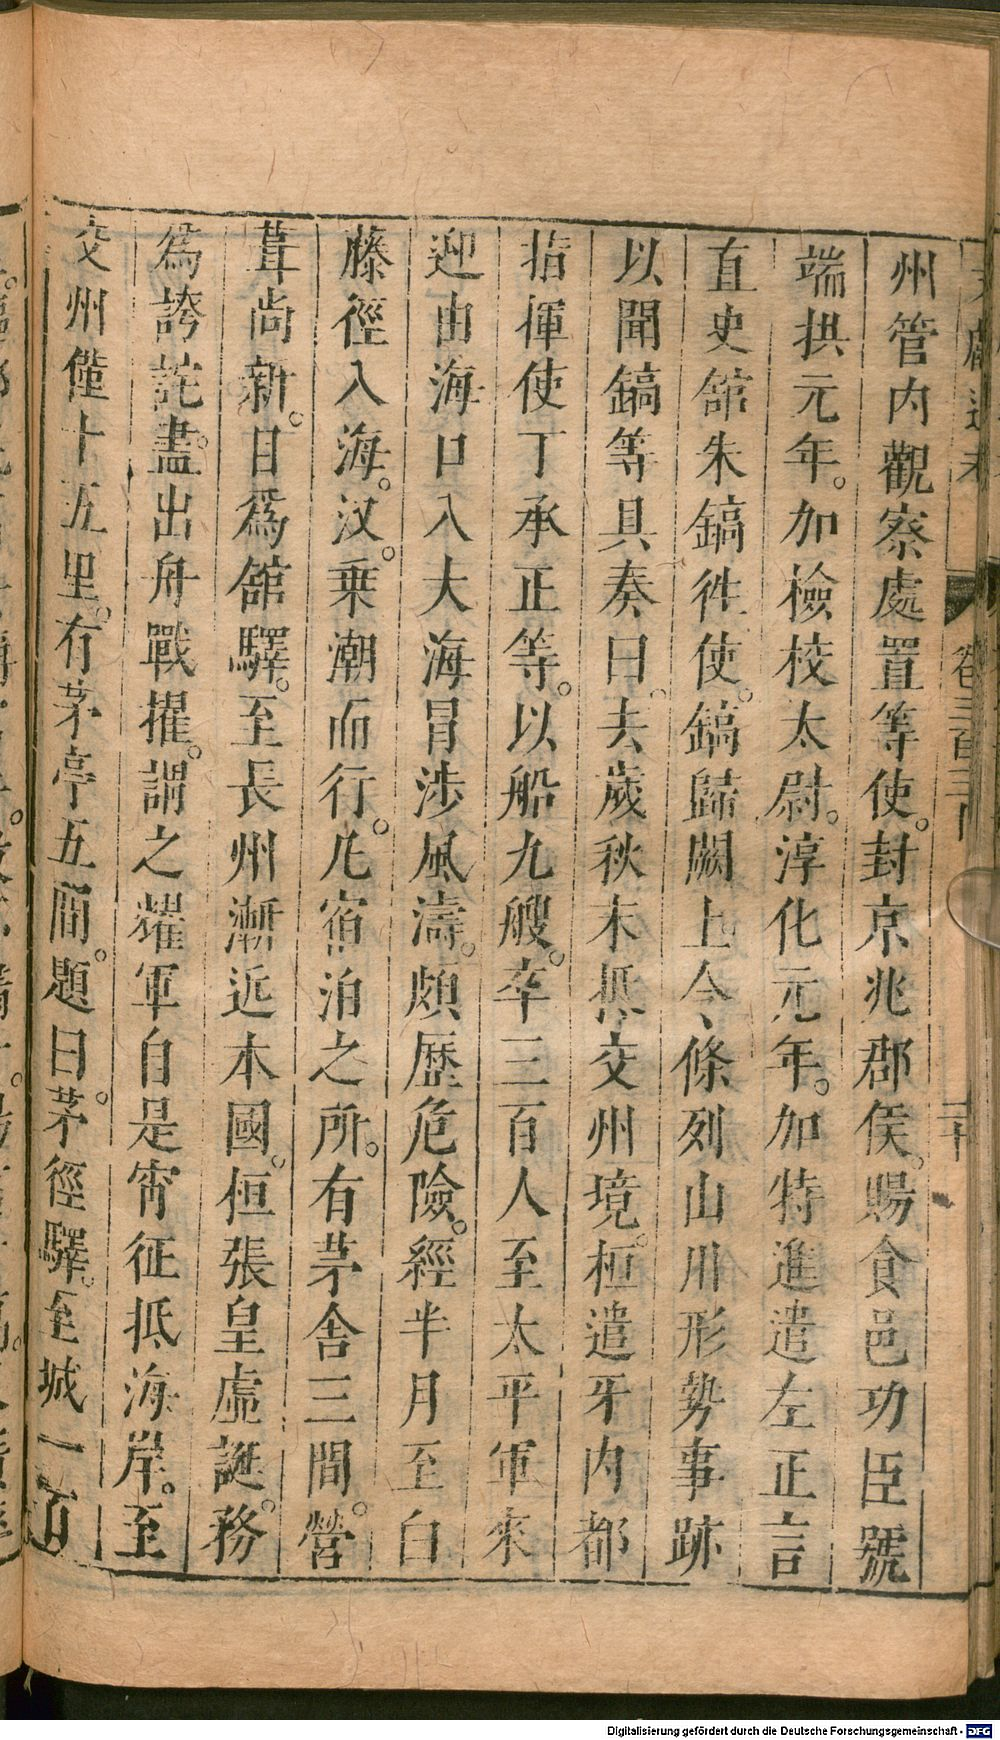 州管内觀察處置等使。封京兆郡侯。賜食邑功臣號
端拱元年。加檢校太尉。淳化元年。加特進遣左正言
直史館朱鎬徃使。鎬歸闕上令條列山川形勢事跡
以聞鎬等具奏曰。去歲秋末抵交州境。桓遣牙内都
指揮使丁承正等。以船九艘。卒三百人至太平軍來
迎由海口入大海冒涉風濤。頗歷危險。經半月至白
藤徑入海。汊。乗潮而行。凡宿泊之所。有茅舍三間。營
葺尚新。目爲舘驛。至長州漸近本國。桓張皇虛誕。務
爲誇詫。盡出舟戰擢。謂之耀軍自是宵征抵海岸。至
交州僅十五里。有茅亭五間。題曰。茅徑驛。至城一百
卷三百三
二十
Digitalisierung gefördert durch die Deutsche Forschungsgemeinschaft - DFG